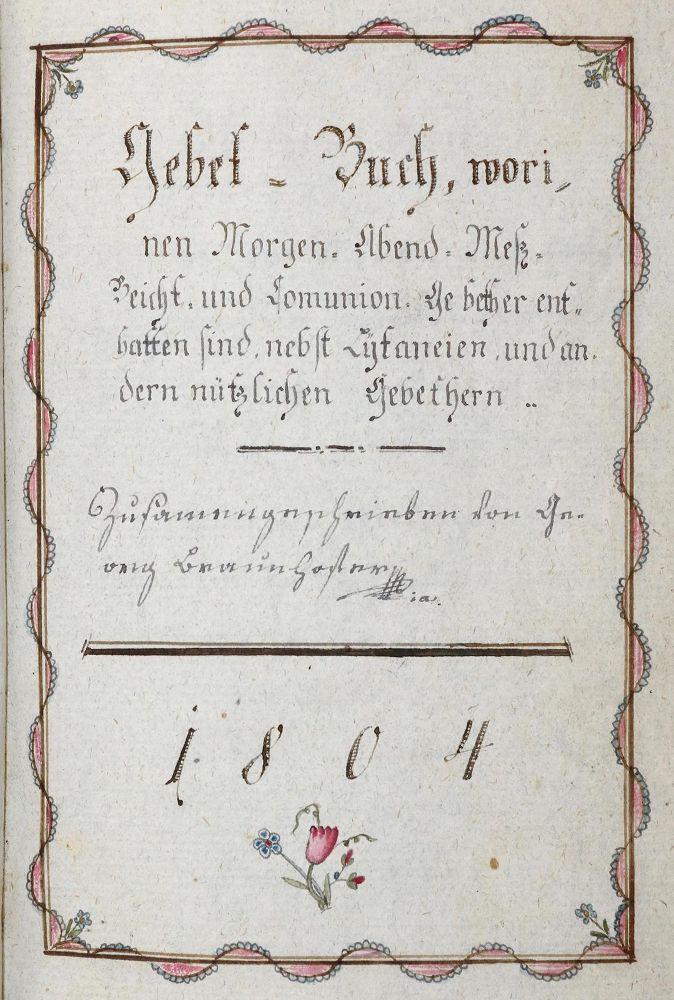 Gebet - Buch, wori,
nen Morgen- Abend- Meß-
Beicht- und Comunion- Gebether ent-
halten sind, nebst Lÿtaneien, und an-
dern nützlichen Gebethern ..
Zusamengeschrieben von Ge-
org Braunhofer
1804